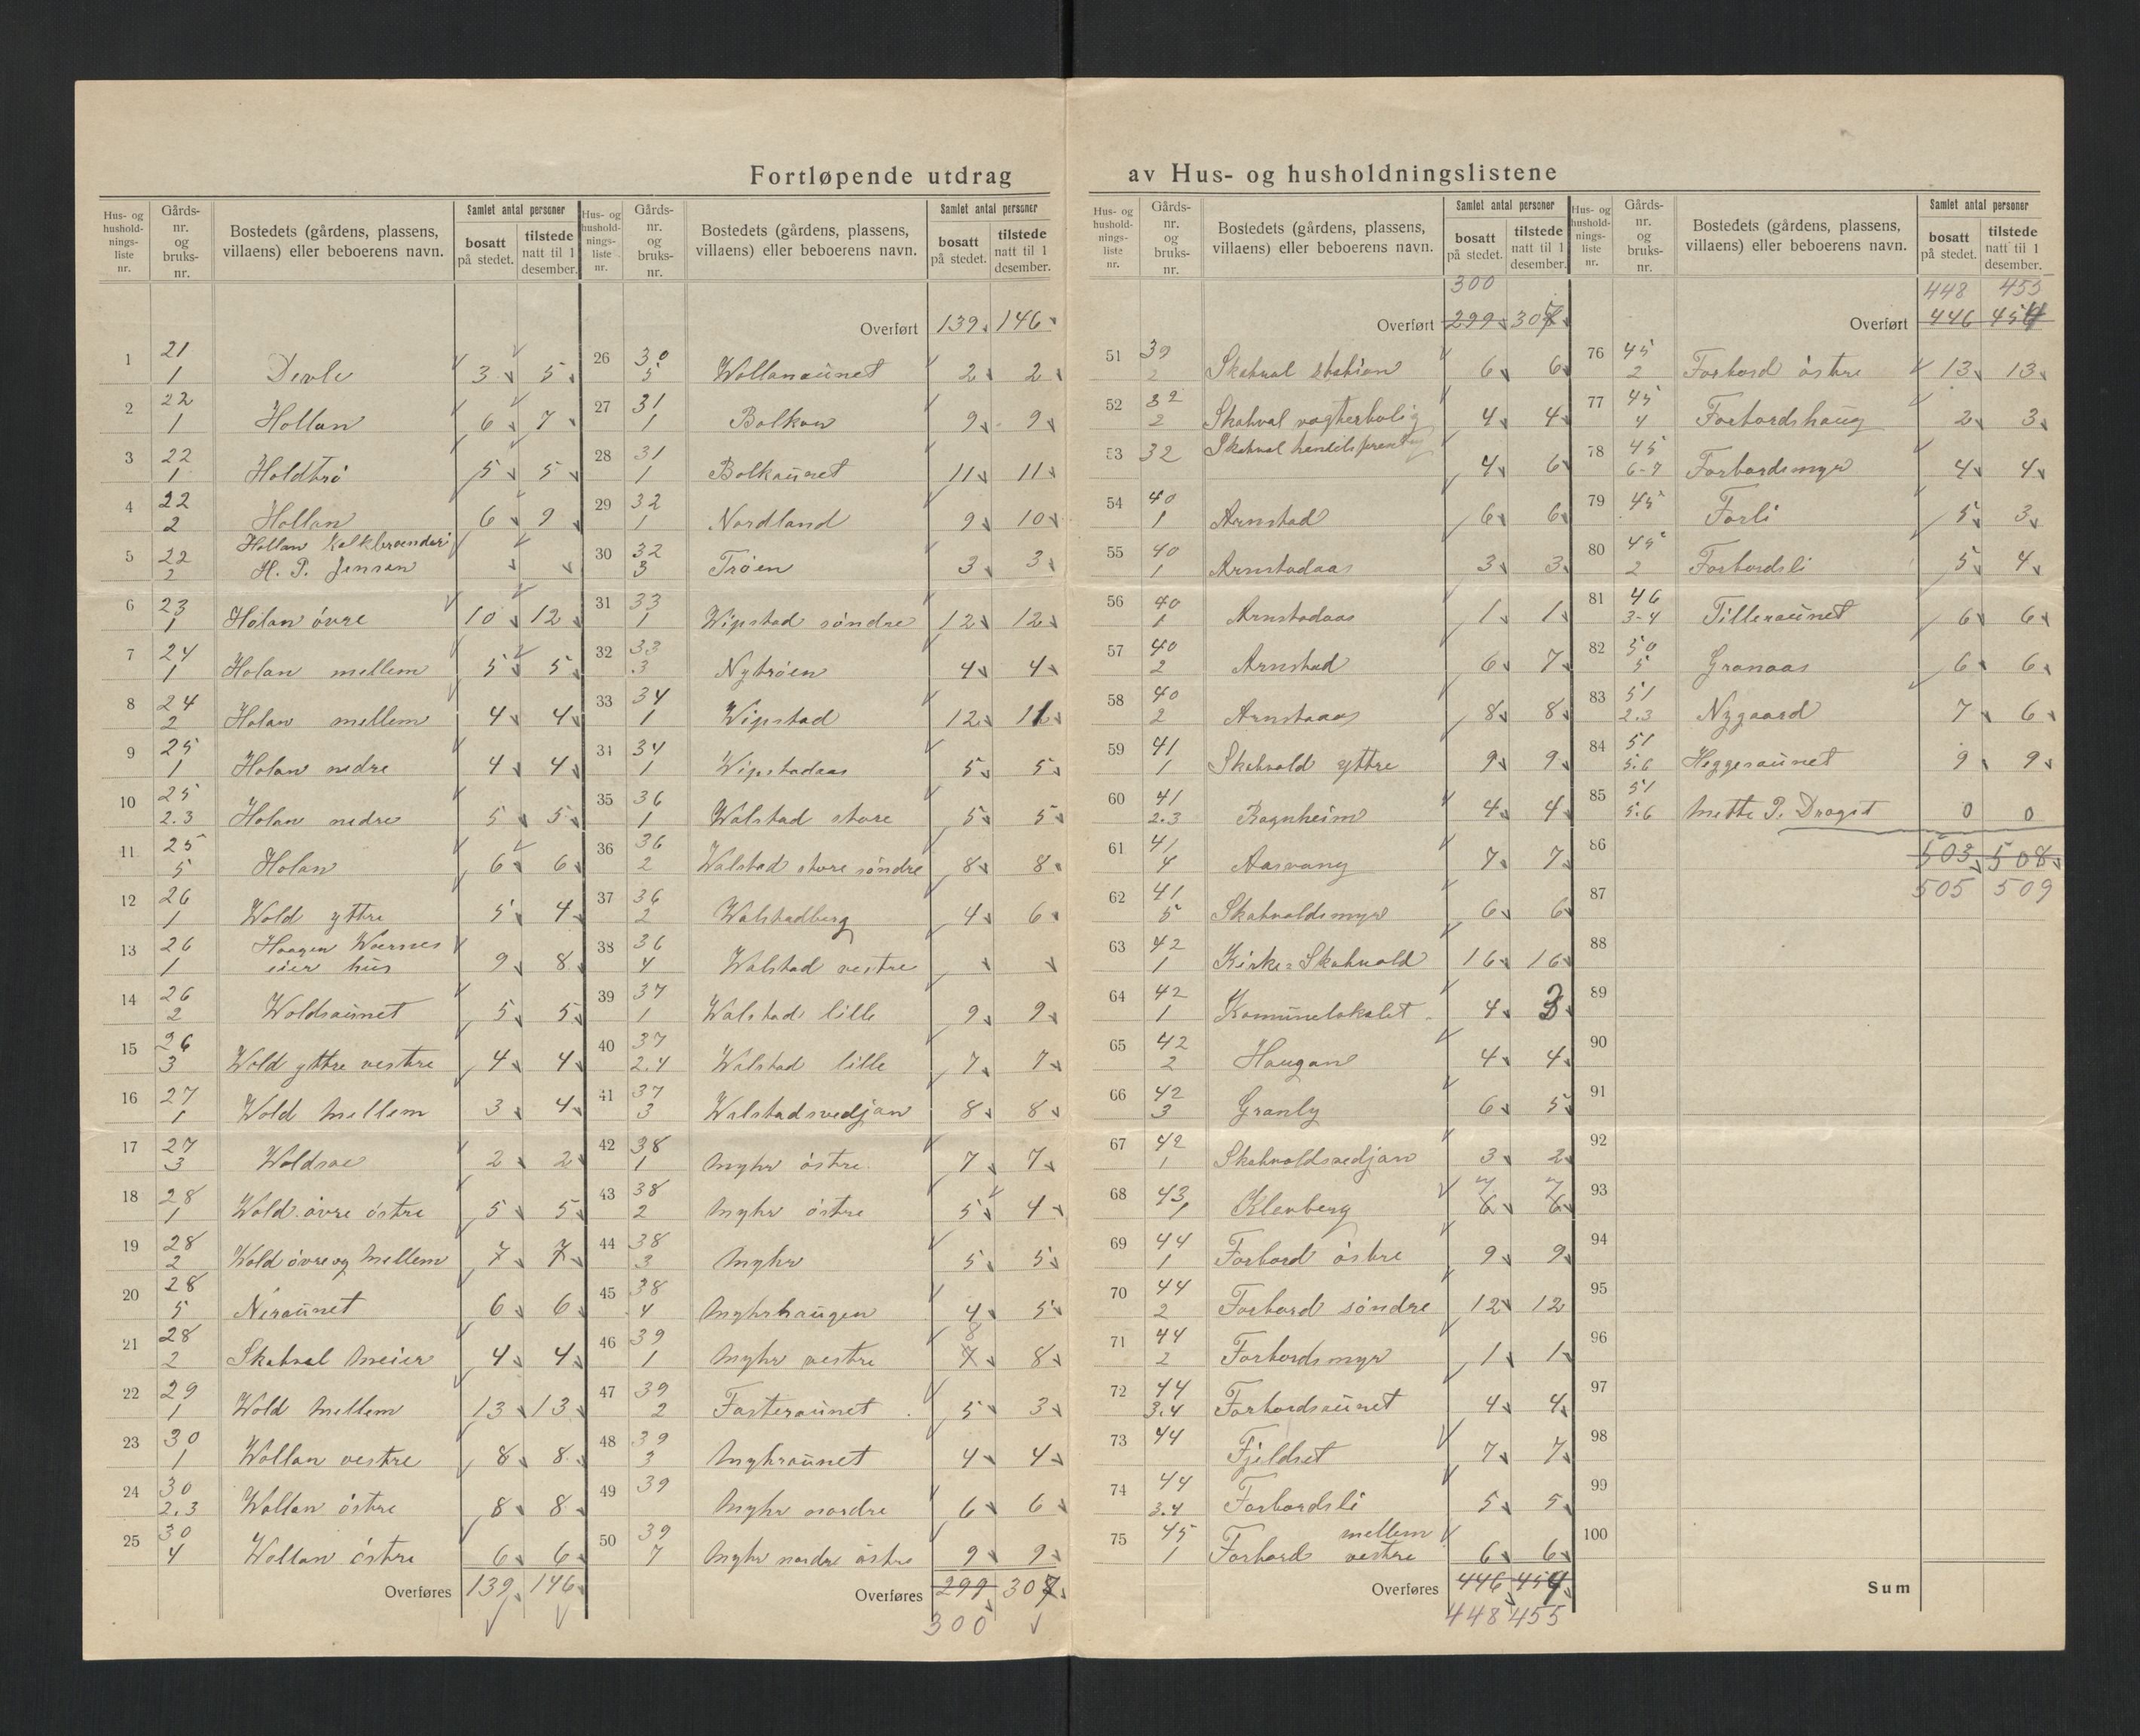 Fortløpende utdrag av Hus- og husholdningslistene
Hus- og hushold-nings-liste nr. | Gårds-nr. og bruks-nr. | Bostedets (gårdens, plassens, villaens) eller beboerens navn. | Samlet antal personer | bosatt på stedet. | tilstede natt til 1 desember.
1 21/1 Devle 3 5
2 22/1 Hollan 6 7
3 22/1 Holdtrø 5 5
4 22/2 Hollan 6 9
5 22/2 Hollan Kalkbrænderi H. P. Jensen
6 23/1 Holan øvre 10 12
7 24/1 Holan mellem 5 5
8 24/2 Holan mellem 4 4
9 25/1 Holan nedre 4 4
10 25/2.3 Holan nedre 5 5
11 25/5 Holan 6 6
12 26/1 Wold yttre 5 4
13 26/1 Haagen Wærnes eier hus 9 8
14 26/2 Woldsaunet 5 5
15 26/3 Wold yttre vestre 4 4
16 27/1 Wold Mellem 3 4
17 27/3 Woldsve 2 2
18 28/1 Wold øvre østre 5 5
19 28/2 Wold øvre og Mellem 7 7
20 28/5 Neraunet 6 6
21 28/2 Skatval Meieri 4 4
22 29/1 Wold Mellem 13 13
23 30/1 Wollan vestre 8 8
24 30/2.3 Wollan østre 8 8
25 30/4 Wollan østre 6 6
Overføres 139 146
Hus- og hushold-nings-liste nr. | Gårds-nr. og bruks-nr. | Bostedets (gårdens, plassens, villaens) eller beboerens navn. | Samlet antal personer | bosatt på stedet. | tilstede natt til 1 desember.
Overført 139 146
26 30/5 Wollanaunet 2 2
27 31/1 Bolkan 9 9
28 31/1 Bolkaunet 11 11
29 32/1 Nordland 9 10
30 32/3 Trøen 3 3
31 33/1 Wipstad søndre 12 12
32 33/3 Nytrøen 4 4
33 34/1 Wipstad 12 11
34 34/1 Wipstadaas 5 5
35 36/1 Walstad store 5 5
36 36/2 Walstad store søndre 8 8
37 36/2 Walstadberg 4 6
38 36/4 Walstad vestre
39 37/1 Walstad lille 9 9
40 37/2.4 Walstad lille 7 7
41 37/3 Walstadsvedjan 8 8
42 38/1 Myhr østre 7 7
43 38/2 Myhr østre 5 4
44 38/3 Myhr 5 5
45 38/4 Myhrhaugen 4 5
46 39/1 Myhr vestre 7 8 8
47 39/2 Fasteraunet 5 3
48 39/3 Myhraunet 4 4
49 39 Myhr nordre 6 6
50 39/7 Myhr nordre østre 9 9
Overføres 299 307
300
Hus- og hushold-nings-liste nr. | Gårds-nr. og bruks-nr. | Bostedets (gårdens, plassens, villaens) eller beboerens navn. | Samlet antal personer | bosatt på stedet. | tilstede natt til 1 desember.
300
Overført 299 307
51 39/2 Skatval station 6 6
52 32/2 Skatval vogterbolig 4 4
53 32 Skatval handelsforening 4 6
54 40/1 Arnstad 6 6
55 40/1 Arnstadaas 3 3
56 40/1 Arnstadaas 1 1
57 40/2 Arnstad 6 7
58 40/2 Arnstaas 8 8
59 41/1 Skatvold yttre 9 9
60 41/2.3 Ragnheim 4 4
61 41/4 Aasvang 7 7
62 41/5 Skatvoldsmyr 6 6
63 42/1 Kirke=Skatvold 16 16
64 42/1 Komunelokalet 4 3
65 42/2 Haugan 4 4
66 42/3 Granly 6 5
67 42/1 Skatvoldsvedjan 3 2
68 43/1 Klenberg 6 7 6 7
69 44/1 Forbord østre 9 9
70 44/2 Forbord søndre 12 12
71 44/2 Forbordsmyr 1 1
72 44/3.4 Forbordsaunet 4 4
73 44 Fjeldset 7 7
74 44/3.4 Forbordsli 5 5
75 45/1 Forbord mellem vestre 6 6
Overføres 446 454
448 455
Hus- og hushold-nings-liste nr. | Gårds-nr. og bruks-nr. | Bostedets (gårdens, plassens, villaens) eller beboerens navn. | Samlet antal personer | bosatt på stedet. | tilstede natt til 1 desember.
448 455
Overført 446 454
76 45/2 Forbord østre 13 13
77 45/4 Forbordshaug 2 3
78 45/6-7 Forbordsmyr 4 4
79 45 Forli 5 3
80 45/2 Forbordsli 5 4
81 46/3-4 Tilleraunet 6 6
82 50/5 Granaas 6 6
83 51/2.3 Nygaard 7 6
84 51/5.6 Heggesaunet 9 9
85 51/5.6 Mette P. Dragst 0 0
86 503 508
87 505 509
88
89
90
91
92
93
94
95
96
97
98
99
100
Sum